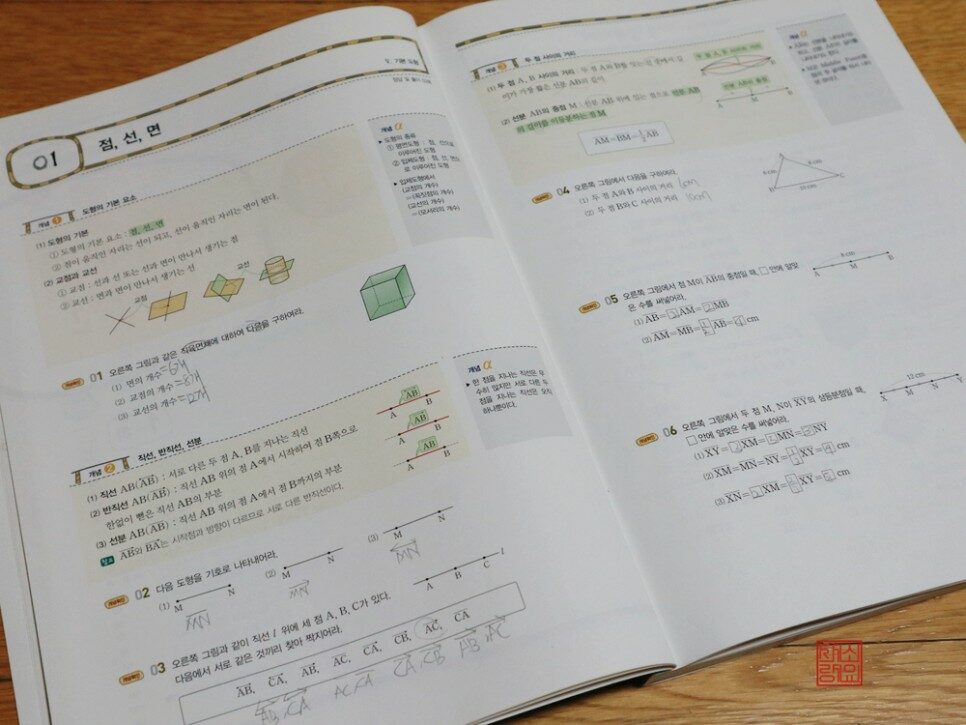 V. 기본 도형
01
점, 선, 면
개념 1 도형의 기본 요소
(1) 도형의 기본
① 도형의 기본 요소 : 점, 선, 면
② 점이 움직인 자리는 선이 되고, 선이 움직인 자리는 면이 된다.
(2) 교점과 교선
① 교점 : 선과 선 또는 선과 면이 만나서 생기는 점
② 교선 : 면과 면이 만나서 생기는 선
교점
교선
개념 α
▶ 도형의 종류
① 평면도형 : 점, 선으로
이루어진 도형
② 입체도형 : 점, 선, 면으
로 이루어진 도형
▶ 입체도형에서
(교점의 개수)
=(꼭짓점의 개수)
(교선의 개수)
=(모서리의 개수)
개념확인 01 오른쪽 그림과 같은 직육면체에 대하여 다음을 구하여라.
(1) 면의 개수 =6개
(2) 교점의 개수 =8개
(3) 교선의 개수 =12개
개념 2 직선, 반직선, 선분
(1) 직선 AB(AB) : 서로 다른 두 점 A, B를 지나는 직선
(2) 반직선 AB(AB) : 직선 AB 위의 점 A에서 시작하여 점 B쪽으로
한없이 뻗은 직선 AB의 부분
(3) 선분 AB(AB) : 직선 AB 위의 점 A에서 점 B까지의 부분
참고 AB와 BA는 시작점과 방향이 다르므로 서로 다른 반직선이다.
AB
A B
AB
A B
AB
A B
개념 α
▶ 한 점을 지나는 직선은 무
수히 많지만 서로 다른 두
점을 지나는 직선은 오직
하나뿐이다.
개념확인 02 다음 도형을 기호로 나타내어라.
(1) M N
(2) M N
(3) M N
MN
MN
MN
개념확인 03 오른쪽 그림과 같이 직선 l 위에 세 점 A, B, C가 있다.
다음에서 서로 같은 것끼리 찾아 짝지어라.
A B C l
AB, CA, AB, AC, CA, CB, AC, CA
AB, CA AC, CA CA, CB AB, AC
개념 3 두 점 사이의 거리
(1) 두 점 A, B 사이의 거리 : 두 점 A와 B를 잇는 선 중에서 길
이가 가장 짧은 선분 AB의 길이
(2) 선분 AB의 중점 M : 선분 AB 위에 있는 점으로 선분 AB
의 길이를 이등분하는 점 M
AM=BM=1/2AB
두 점 A, B 사이의 거리
A B
선분 AB의 중점
A M B
개념 α
개념확인 04 오른쪽 그림에서 다음을 구하여라.
(1) 두 점 A와 B 사이의 거리
(2) 두 점 B와 C 사이의 거리 10cm
A
6 cm 8 cm
B 10 cm C
개념확인 05 오른쪽 그림에서 점 M이 AB의 중점일 때, □ 안에 알맞
은 수를 써넣어라.
(1) AB=2AM=2MB
(2) AM=MB=1/2AB=4 cm
8 cm
A M B
개념확인 06 오른쪽 그림에서 두 점 M, N이 XY의 삼등분점일 때,
□ 안에 알맞은 수를 써넣어라.
(1) XY=3XM=3MN=3NY
(2) XM=MN=NY=1/3XY=4 cm
(3) XN=2XM=XY=8 cm
12 cm
X M N Y